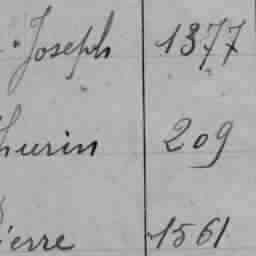 Joseph 1377
hurin 209
ierre 1561